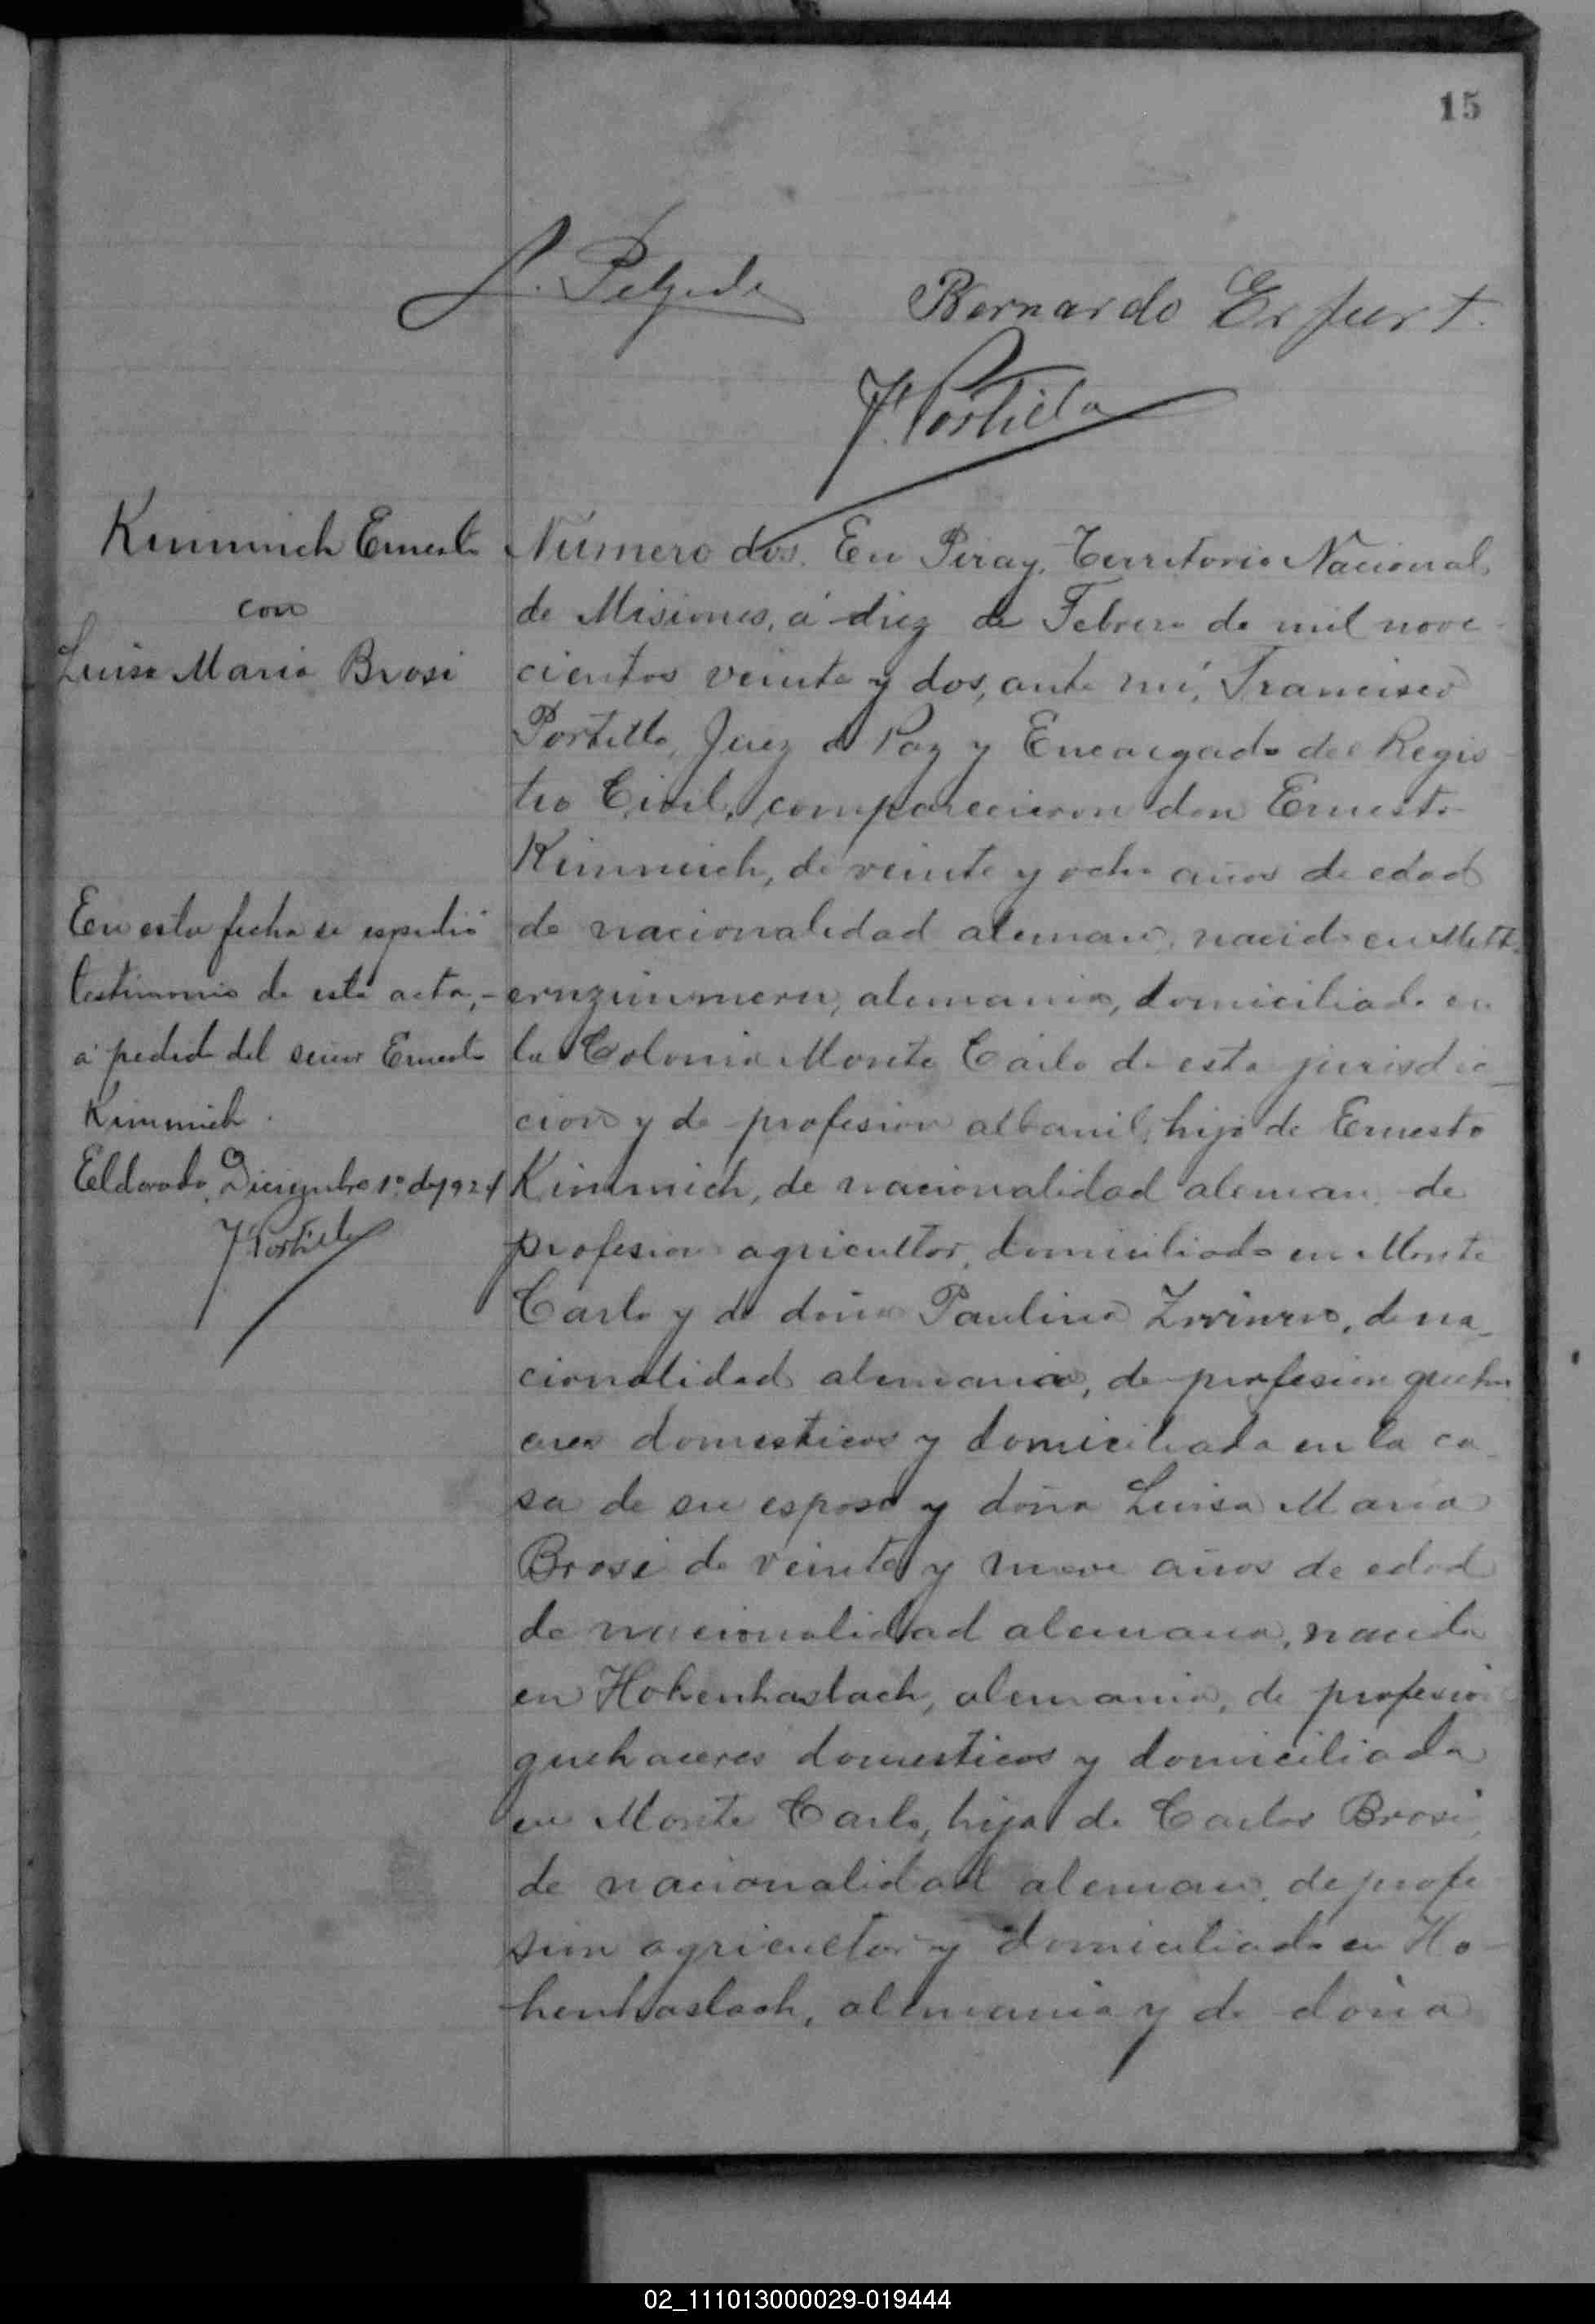 15
Bernardo Erfurt.
F. Portillo
Kimmich Ernesto
con
Luisa Maria Brosi
En esta fecha se espidió
testimonio de esta acta,-
a' pedido del señor Ernesto
Kimmich.
Eldorado, Diciembre 1º de 1924
F. Portillo
Número dos. En Piray, Territorio Nacional
de Misiones, á diez de Febrero de mil nove-
cientos veinte y dos, ante mí, Francisco
Portillo, Juez de Paz y Encargado del Regis-
tro Civil, comparecieron don Ernesto
Kimmich, de veinte y ocho años de edad
de nacionalidad aleman, nacido en Mett-
ernzimmern, alemania, domiciliado en
la Colonia Monte Carlo de esta jurisdic-
cion y de profesion albanil, hijo de Ernesto
Kimmich, de nacionalidad aleman, de
profesion agricultor, domiciliado en Monte
Carlo y de doña Paulina de na-
cionalidad alemana, de profesion queha
ceres domesticos y domiciliada en la ca-
sa de su esposo y doña Luisa Maria
Brosi de veinte y nueve años de edad
de nacionalidad alemana, nacida
en Hohenhaslach, alemania, de profesion
quehaceres domesticos y domiciliada
en Monte Carlo, hija de Carlos Brosi,
de nacionalidad aleman, de profe
sion agricultor y domiciliado en Ho-
henhaslach, alemania y de doña
02_111013000029-019444